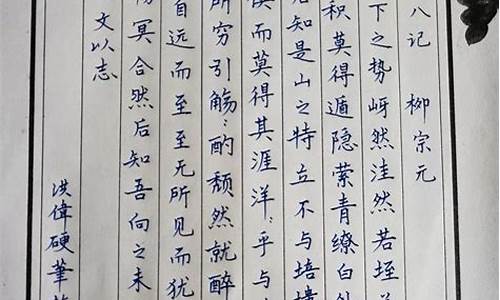 八记 柳宗元
下之势岈然洼然若垤
积莫得遁隐萦青缭白外
知是山之特立不与培塿
而莫得其涯洋〻乎与
所穷引觞〻酌颓然就醉
自远而至至无所见而犹
冥合然后知吾向之未
文以志
洪偉硬筆